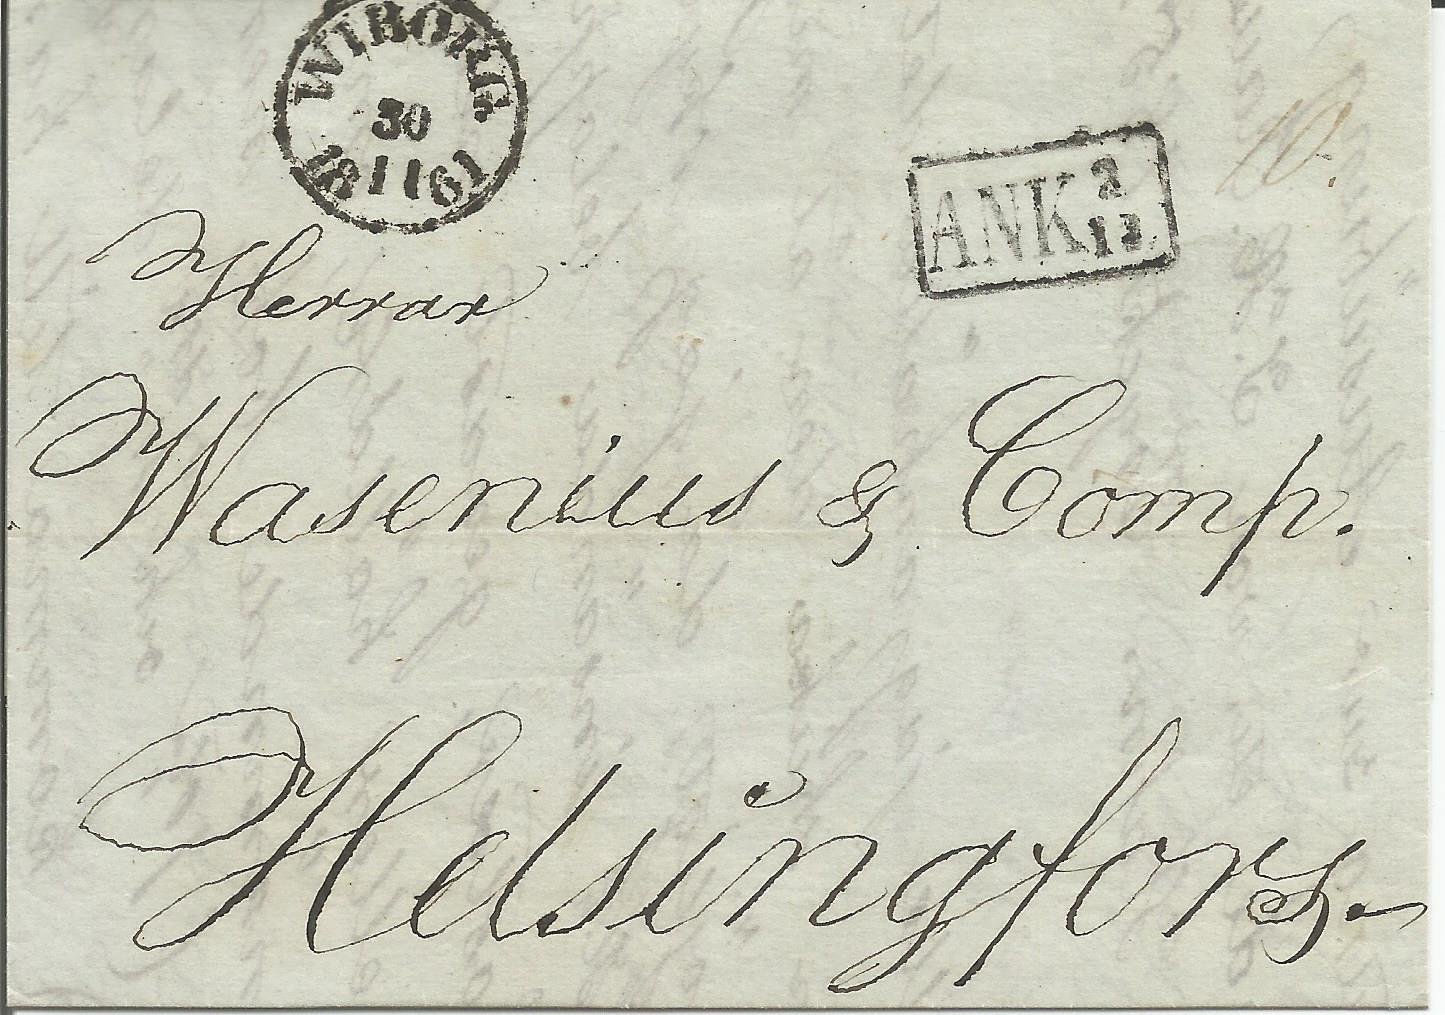 WIBORG
30
18 11 61
ANK 2
12.
10.
Herrar
Wasenius & Comp.
Helsingfors.